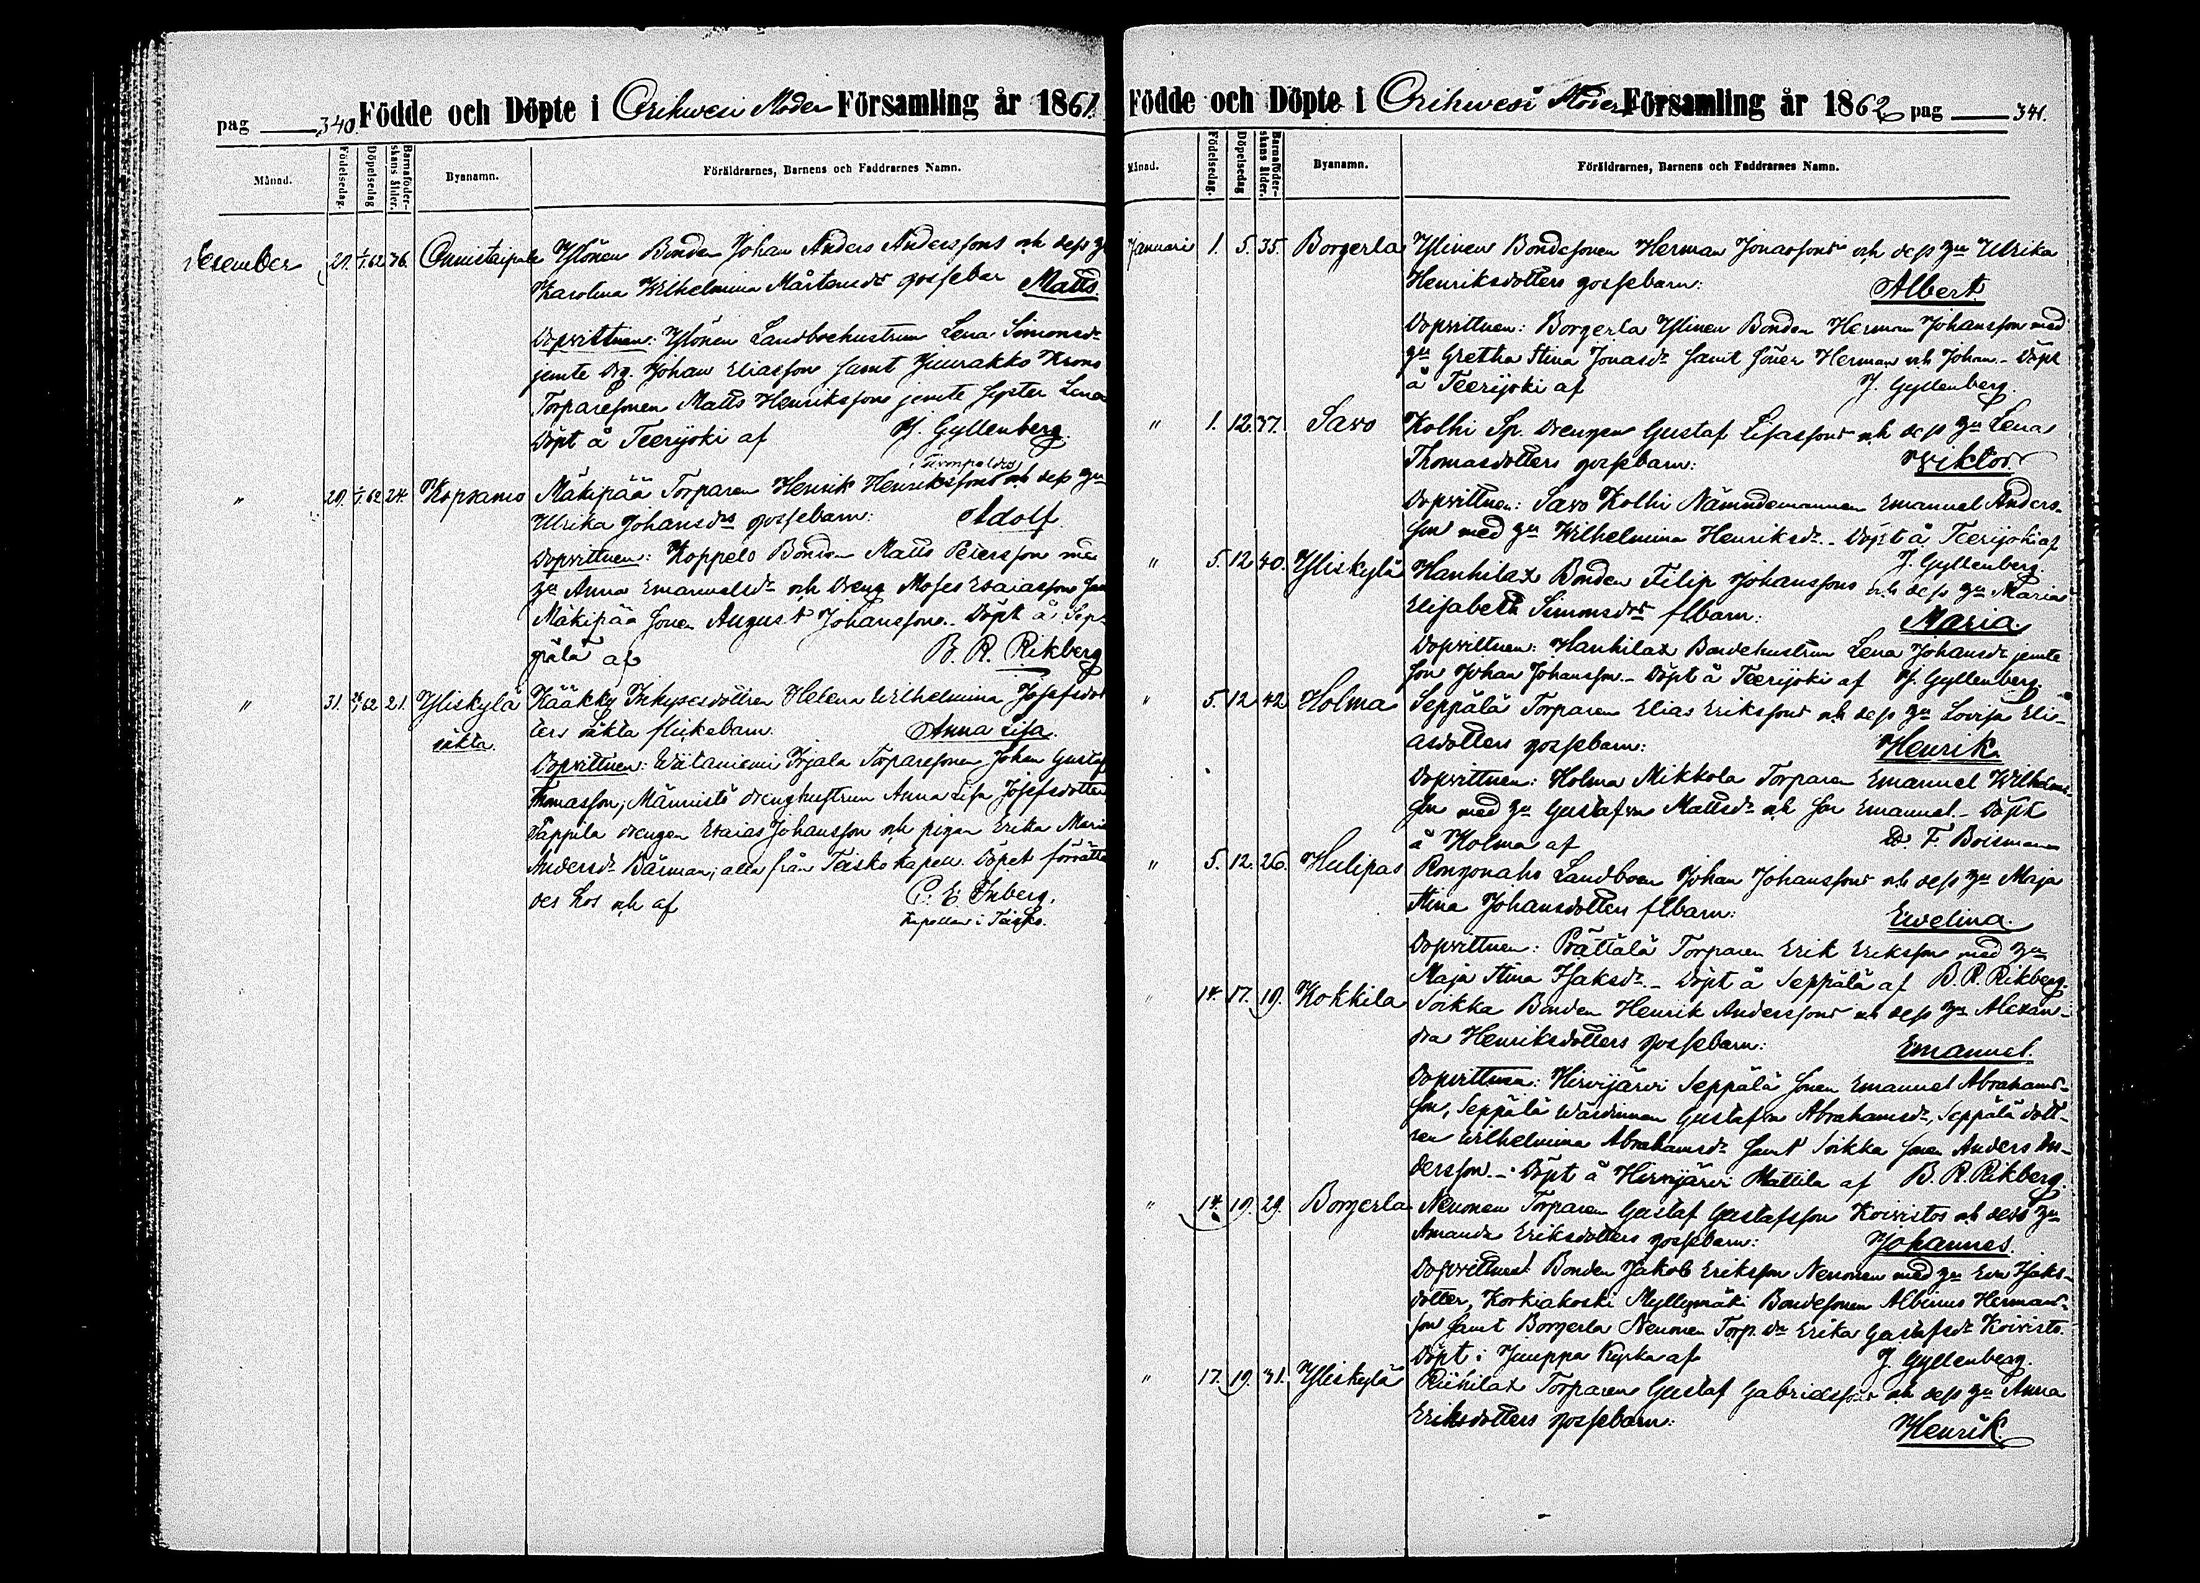 pag 340 Födde och Döpte i Orihwesi Moder Församling år 1861.
Månad. Födelsedag. Döpelsedag Barnaföderskans ålder. Byanamn. Föräldrarnes, Barnens och Faddrarnes Namn.
December 29. 1/1.62 36. Onnistaipale Ylönen Bonden Johan Anders Anderssons och dess
Karolina Wilhelmina Mårtensdr gossebar Matts.
Dopvittnen: Ylönen Landboehustrun Lena Simonsdr
jemte Drg. Johan Eliasson samt Juurakko Krono
Torparesonen Matts Henriksson jemte syster Lena
Döpt å Teerijoki af J. Gyllenberg.
" 29. 1/1.62 24. Kopsamo Mäkipää Torparen Henrik Henrikssons och dess hu
Ulrika Johansdrs gossebarn: Adolf.
Dopvittnen: Koppelo Bonden Matts Petersson me
hu Anna Emanuelsdr och Dreng Moses Esaiasson
Mäkipää sonen August Johansson. Döpt å Sep-
pälä af B. R. Rikberg
" 31. 62 21. Yliskylä Kääkky Inhysesdottren Helena Wilhelmina Josefsdot
oäkta. ters oäkta flickebarn. Anna Lisa.
Dopvittnen: Wätaniemi Torparesonen Johan Gustaf
Thomasson, Männistö drenghustrun Anna Lisa Josefsdotter
Pappila drengen Esaias Johansson och pigan Erika Maria
Andersdr Bärman; alla från Teisko kapell. Dopet förrätta
des hos och af C. E. Inberg.
Kapellan i Teisko.
Födde och Döpte i Orihwesi Moder Församling år 1862. pag 341.
Månad. Födelsedag. Döpelsedag Barnaföderskans ålder. Byanamn. Föräldrarnes, Barnens och Faddrarnes Namn.
Januari 1. 5. 35. Borgerla Ylinen Bondesonen Herman Jonassons och dess hu Ulrika
Henriksdotters gossebarn: Albert
Dopvittnen: Borgerla Ylinen Bonden Herman Johansson med
hu Gretha Stina Jonasdr samt söner Herman och Johan. Döpt
å Teerijoki af J. Gyllenberg.
" 1. 12. 37. Savo Kolhi Sp. Drengen Gustaf Lisassons och dess hu Lena
Thomasdotters gossebarn: Wiktor
Dopvittnen: Savo Kolhi Nämndemannen Emanuel Anders-
son med hu Wilhelmina Henriksdr. Döpt å Teerijoki af
J. Gyllenberg.
" 5. 12 40. Yliskylä Hanhilax Bonden Filip Johanssons och dess hu Maria
Elisabeth Simonsdrs flbarn: Maria.
Dopvittnen: Hanhilax Bondehustrun Lena Johansdr jemte
son Johan Johansson. Döpt å Teerijoki af J. Gyllenberg.
" 5. 12 42 Holma Seppälä Torparen Elias Erikssons och dess hu Lovisa Eli-
asdotters gossebarn: Henrik.
Dopvittnen: Holma Mikkola Torparen Emanuel Wilhelms-
son med hu Gustafva Mattsdr och son Emanuel. Döpt
å Holma af D. F. Boisman
" 5. 12. 26. Hulipas Rongonaho Landboen Johan Johanssons och dess hu Maja
Stina Johansdotters flbarn: Ewelina.
Dopvittnen: Prättälä Torparen Erik Eriksson med hu
Maja Stina Isaksdr. Döpt å Seppälä af B. R. Rikberg.
" 14. 17. 19. Kokkila Soikka Bonden Henrik Anderssons och dess hu Alexan-
dra Henriksdotters gossebarn: Emanuel.
Dopvittnen: Hirvijärvi Seppälä sonen Emanuel Abrahams-
son, Seppälä wärdinnan Gustafva Abrahamsdr, Seppälä dott-
ren Wilhelmina Abrahamsdr samt Soikka sonen Anders An-
dersson. Döpt å Hirvijärvi Mattila af B. R. Rikberg.
" 14. 19. 29. Borgerla Neuonen Torparen Gustaf Gustafsson Koivistos och dess hu
Amanda Eriksdotters gossebarn: Johannes.
Dopvittnen: Bonden Jakob Eriksson Neuonen med hu Eva Isaks-
dotter, Korkiakoski Myllymäki Bondesonen Albinus Hermans-
son samt Borgerla Neuonen Torp. dr Erika Gustafsdr Koivisto.
Döpt i Juuppa Kyrka af J. Gyllenberg.
" 17. 19. 31. Yliskylä Riihilax Torparen Gustaf Gabrielssons och dess hu Anna
Eriksdotters gossebarn: Henrik.